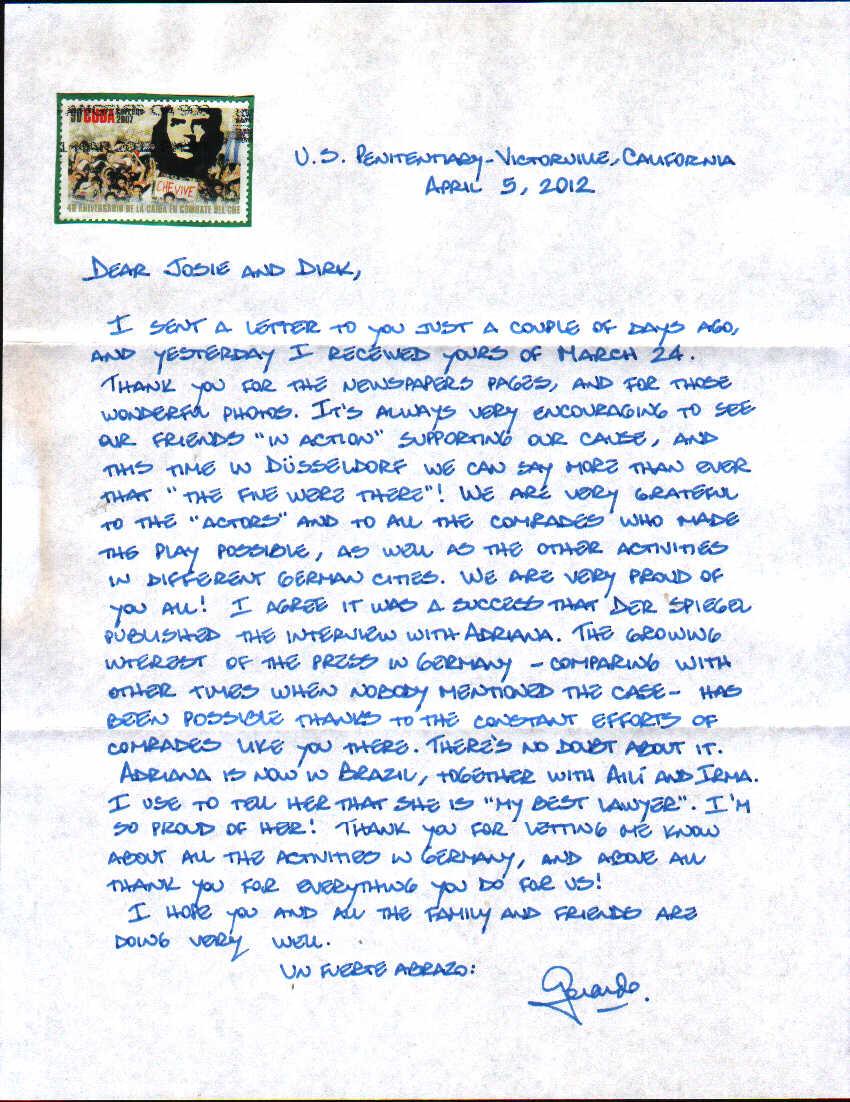 90 CUBA CORREOS
2007
CHE VIVE
40 ANIVERSARIO DE LA CAIDA EN COMBATE DEL CHE
U.S. PENITENTIARY-VICTORVILLE, CALIFORNIA
APRIL 5, 2012
DEAR JOSIE AND DIRK,
I SENT A LETTER TO YOU JUST A COUPLE OF DAYS AGO,
AND YESTERDAY I RECEIVED YOURS OF MARCH 24.
THANK YOU FOR THE NEWSPAPERS PAGES, AND FOR THOSE
WONDERFUL PHOTOS. IT'S ALWAYS VERY ENCOURAGING TO SEE
OUR FRIENDS "IN ACTION" SUPPORTING OUR CAUSE, AND
THIS TIME IN DÜSSELDORF WE CAN SAY MORE THAN EVER
THAT "THE FIVE WERE THERE"! WE ARE VERY GRATEFUL
TO THE "ACTORS" AND TO ALL THE COMRADES WHO MADE
THE PLAY POSSIBLE, AS WELL AS THE OTHER ACTIVITIES
IN DIFFERENT GERMAN CITIES. WE ARE VERY PROUD OF
YOU ALL! I AGREE IT WAS A SUCCESS THAT DER SPIEGEL
PUBLISHED THE INTERVIEW WITH ADRIANA. THE GROWING
INTEREST OF THE PRESS IN GERMANY - COMPARING WITH
OTHER TIMES WHEN NOBODY MENTIONED THE CASE - HAS
BEEN POSSIBLE THANKS TO THE CONSTANT EFFORTS OF
COMRADES LIKE YOU THERE. THERE'S NO DOUBT ABOUT IT.
ADRIANA IS NOW IN BRAZIL, TOGETHER WITH AILÍ AND IRMA.
I USE TO TELL HER THAT SHE IS "MY BEST LAWYER". I'M
SO PROUD OF HER! THANK YOU FOR LETTING ME KNOW
ABOUT ALL THE ACTIVITIES IN GERMANY, AND ABOVE ALL
THANK YOU FOR EVERYTHING YOU DO FOR US!
I HOPE YOU AND ALL THE FAMILY AND FRIENDS ARE
DOING VERY WELL.
UN FUERTE ABRAZO:
Gerardo.